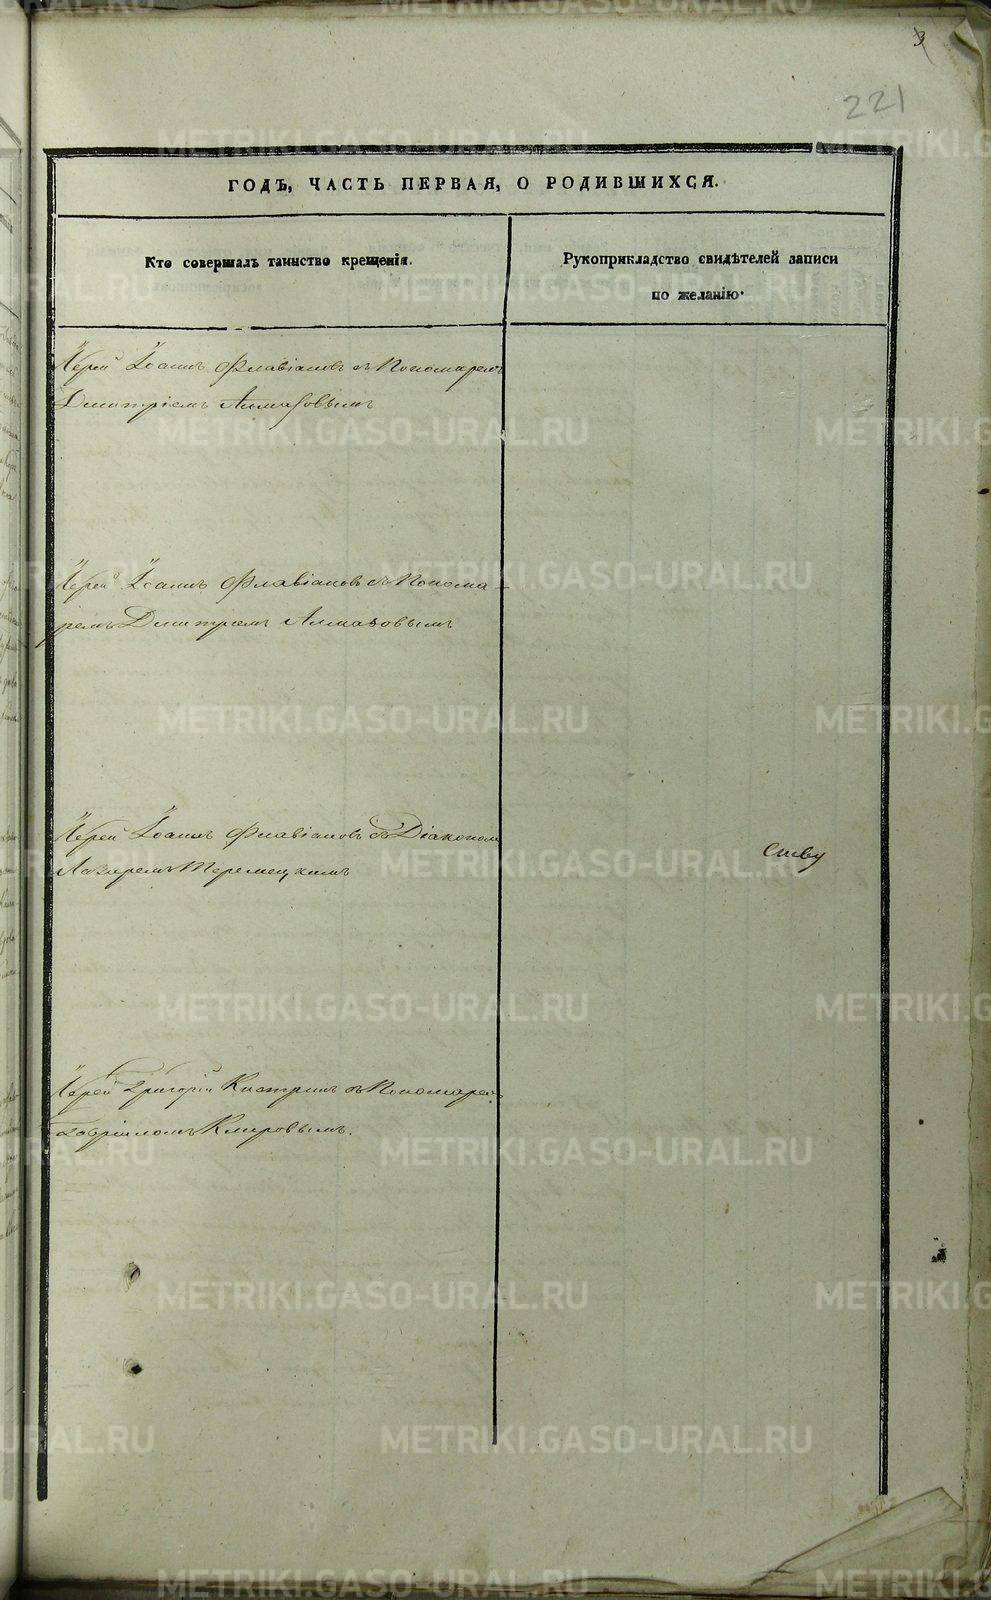 3
221
ГОДЪ, ЧАСТЬ ПЕРВАЯ, О РОДИВШИХСЯ.
Кто совершалъ таинство крещенія.
Рукоприкладство свидѣтелей записи
по желанію.
Іерей Іоаннъ Флавіановъ съ Пономаремъ
Дмитріемъ Алмазовымъ
Іерей Іоаннъ Флавіановъ съ Понома
ремъ Дмитріемъ Алмазовымъ
Іерей Іоаннъ Флавіановъ съ Діакономъ
Лазаремъ Теремецкимъ
Іерей Григорій съ Пономаремъ
Гавріиломъ Кмировымъ.
METRIKI.GASO-URAL.RU